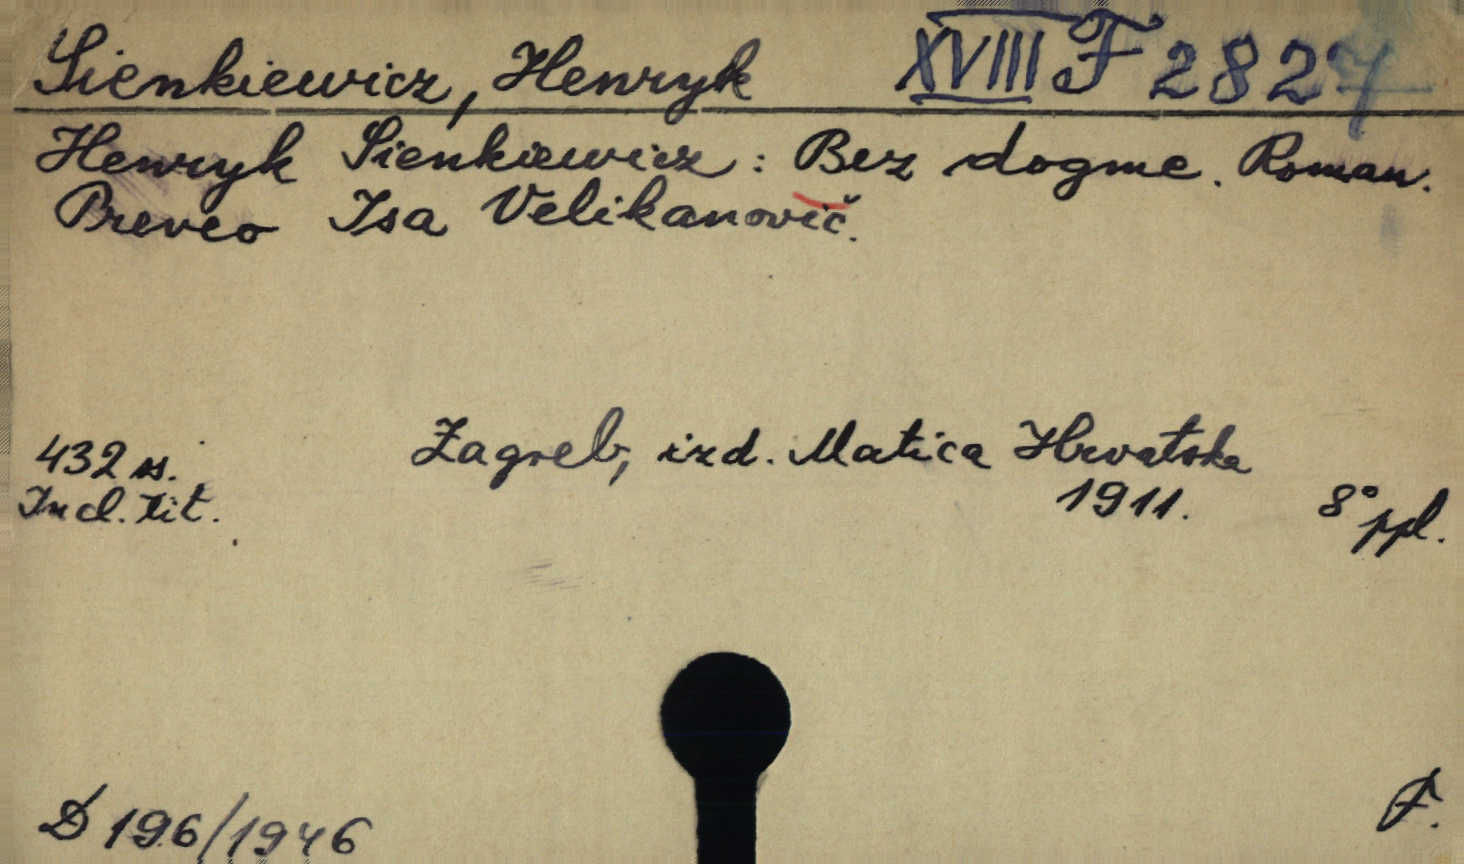 Sienkiewicz, Henryk XVIII F 2827
Henryk Sienkiewicz: Bez dogme. Roman.
Preveo Isa Velikanovič.
432 s. Zagreb, izd. Matica Hrvatska
Incl. tit. 1911. 8° ppl.
D 196/1946 F.